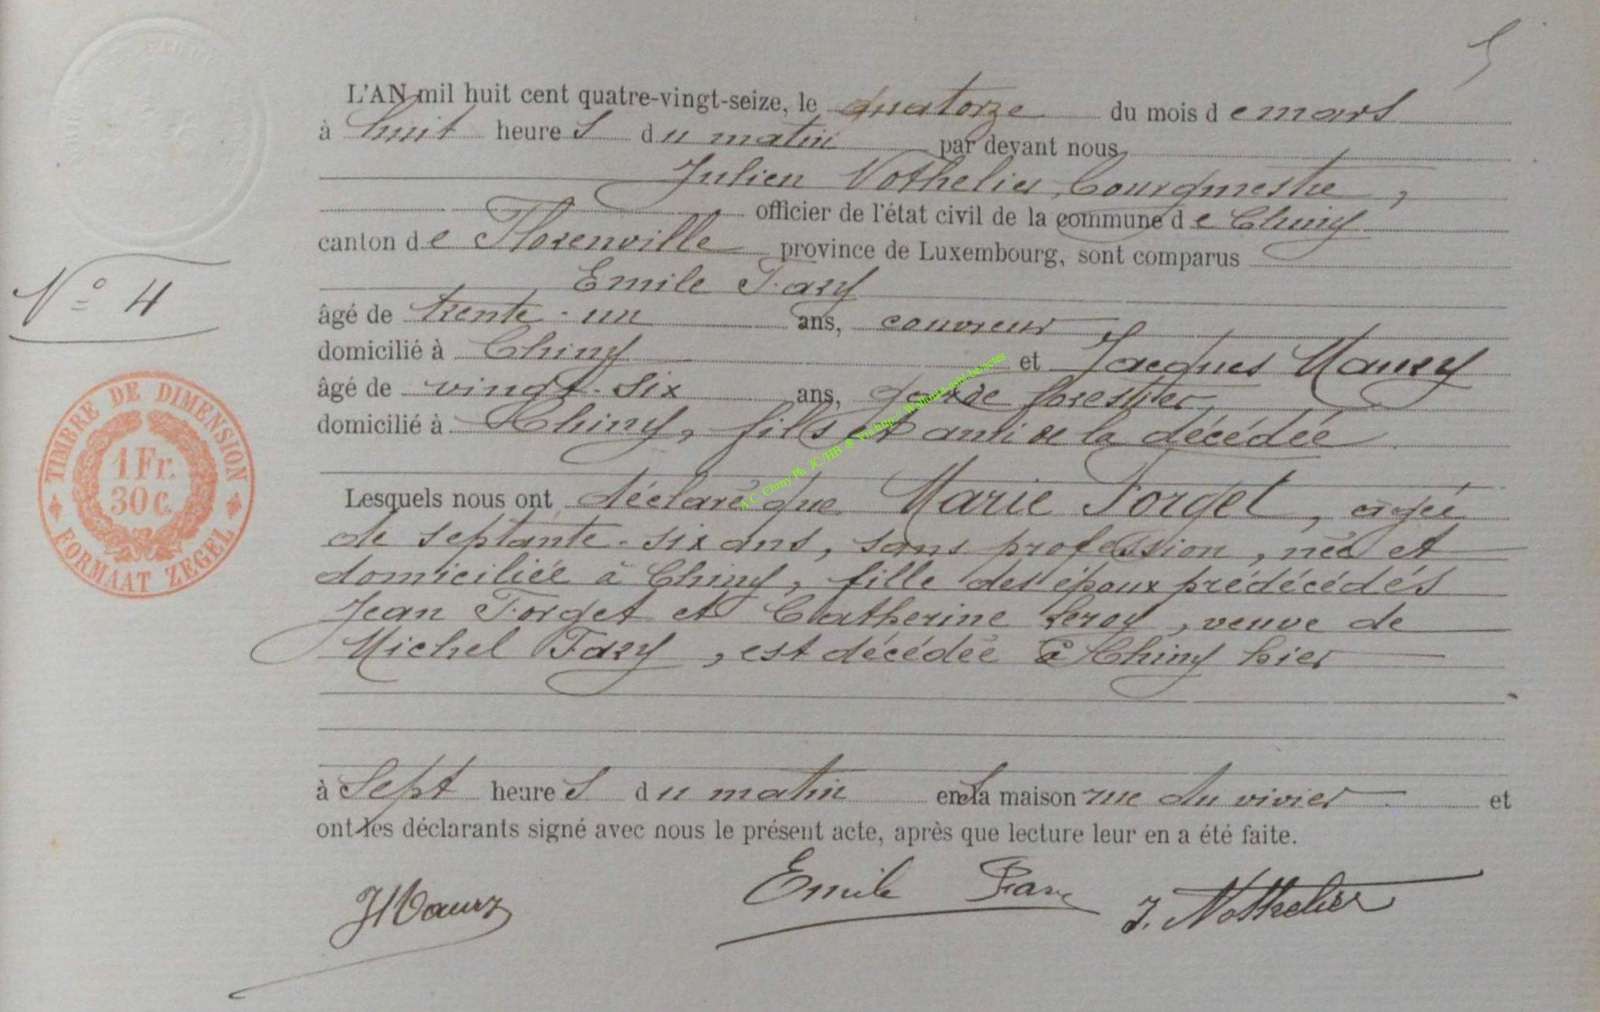 5
L'AN mil huit cent quatre-vingt-seize, le quatorze du mois de mars
à huit heures du matin par devant nous
Julien Nothelier, bourgmestre,
officier de l'état civil de la commune de Chiny
canton de Florenville province de Luxembourg, sont comparus
Emile Fary
N° 4
âgé de trente-un ans, couvreur
domicilié à Chiny et Jacques Maury
âgé de vingt-six ans, garde forestier
domicilié à Chiny, fils et ami de la décédée
Lesquels nous ont déclaré que Marie Forget, âgée
de septante-six ans, sans profession, née et
domiciliée à Chiny, fille des époux prédécédés
Jean Forget et Catherine Leroy, veuve de
Michel Fary, est décédée à Chiny hier
TIMBRE DE DIMENSION
1 Fr.
30 C.
FORMAAT ZEGEL
à sept heures du matin en sa maison rue du vivier et
ont les déclarants signé avec nous le présent acte, après que lecture leur en a été faite.
Emile Fary
J. Nothelier